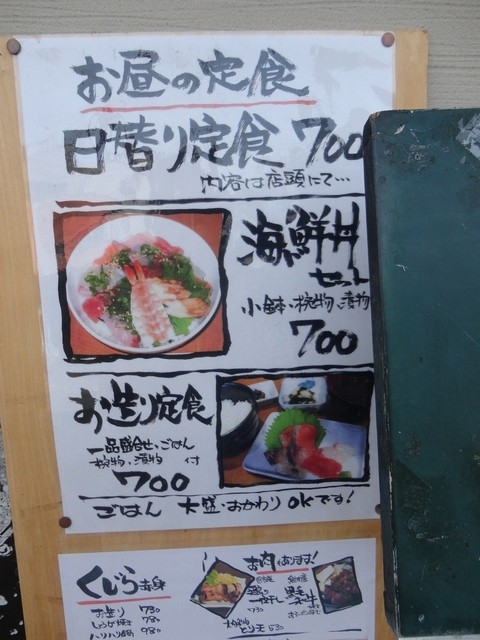 お昼の定食
日替り定食 700
内容は店頭にて…
海鮮丼
セット
小鉢・椀物・漬物
700
お造り定食
一品盛合せ・ごはん
椀物・漬物 付
700
ごはん 大盛・おかわり OKです!
くじら赤身
お造り 780
しょうが焼き 780
ハリハリ鍋 980
お肉あります!
とり天